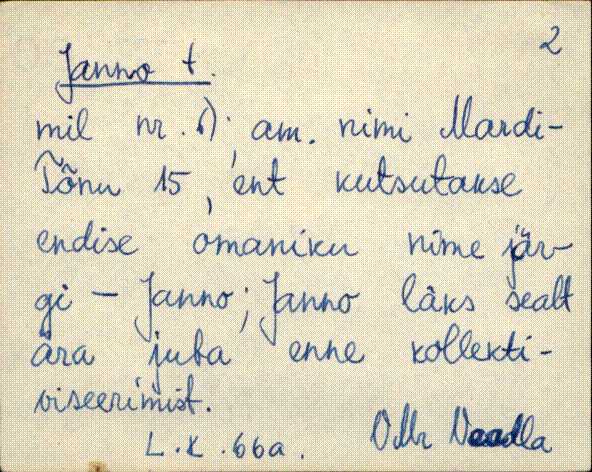 2
Janno t.
mil nr. 6); am. nimi Mardi-
Tõnu 15, ent kutsutakse
endise omaniku nime jär-
gi – Janno; Janno läks sealt
ära juba enne kollekti-
viseerimist.
L.K. 66a.